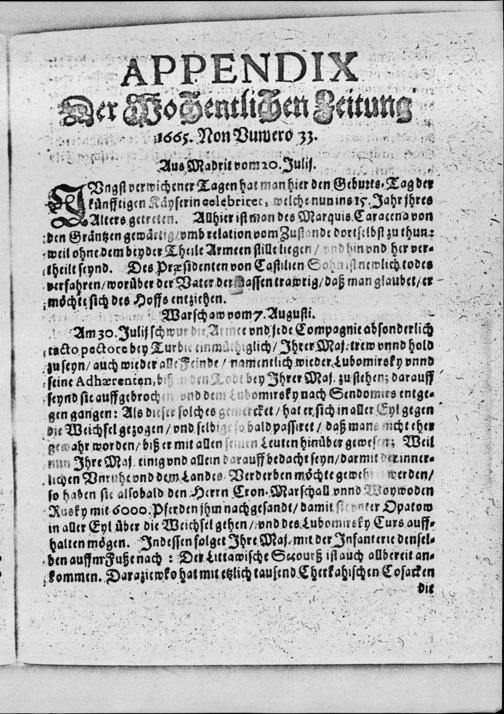 APPENDIX
Der Wochentlichen Zeitung
1665. Non Vumero 33.
Aus Madrit vom 20. Julij.
JVngst verwichener Tagen hat man hier den Geburts-Tag der
künfftigen Käyserin celebriret, welche nun ins 15. Jahr jhres
Alters getreten. Allhier ist man des Marquis Caracena von
den Gräntzen gewärtig / vmb relation vom Zustande dortselbst zu thun:
weil ohne dem beyder Theile Armeen stille liegen / vnd hin vnd her ver-
theilt seynd. Des Præsidenten von Castilien Sohn ist newlich todes
verfahren / worüber der Vater der massen trawrig / daß man glaubet / er
möchte sich des Hoffs entziehen.
Warschaw vom 7. Augusti.
Am 30. Julij schwur die Armee vnd jede Compagnie absonderlich
tacto pectore bey Turbie einmühtiglich / Ihrer Maj. trew vnnd hold
zu seyn / auch wieder alle Feinde / namentlich wieder Lubomirsky vnnd
seine Adhærenten, biß in den Todt bey Ihrer Maj. zu stehen; darauff
seynd sie auffgebrochen vnd dem Lubomirsky nach Sendomirs entge-
gen gangen: Als dieser solches gemercket / hat er sich in aller Eyl gegen
die Weichsel gezogen / vnd selbige so bald passiret / daß mans nicht eher
gewahr worden / biß er mit allen seinen Leuten hinüber gewesen; Weil
nun Ihre Maj. einig vnd allein darauff bedacht seyn / darmit der inner-
lichen Vnruhe vnd dem Landes-Verderben möchte gewehret werden /
so haben sie alsobald den Herrn Cron-Marschall vnnd Woywoden
Rusky mit 6000. Pferden jhm nachgesandt / damit sie vnter Opatow
in aller Eyl über die Weichsel gehen / vnd des Lubomirsky Curs auff-
halten mögen. Indessen folget Ihre Maj. mit der Infanterie densel-
ben auffm Fuße nach: Der Littawische Secourß ist auch allbereit an-
kommen. Daraziewko hat mit etzlich tausend Cherkahischen Cosacken
die